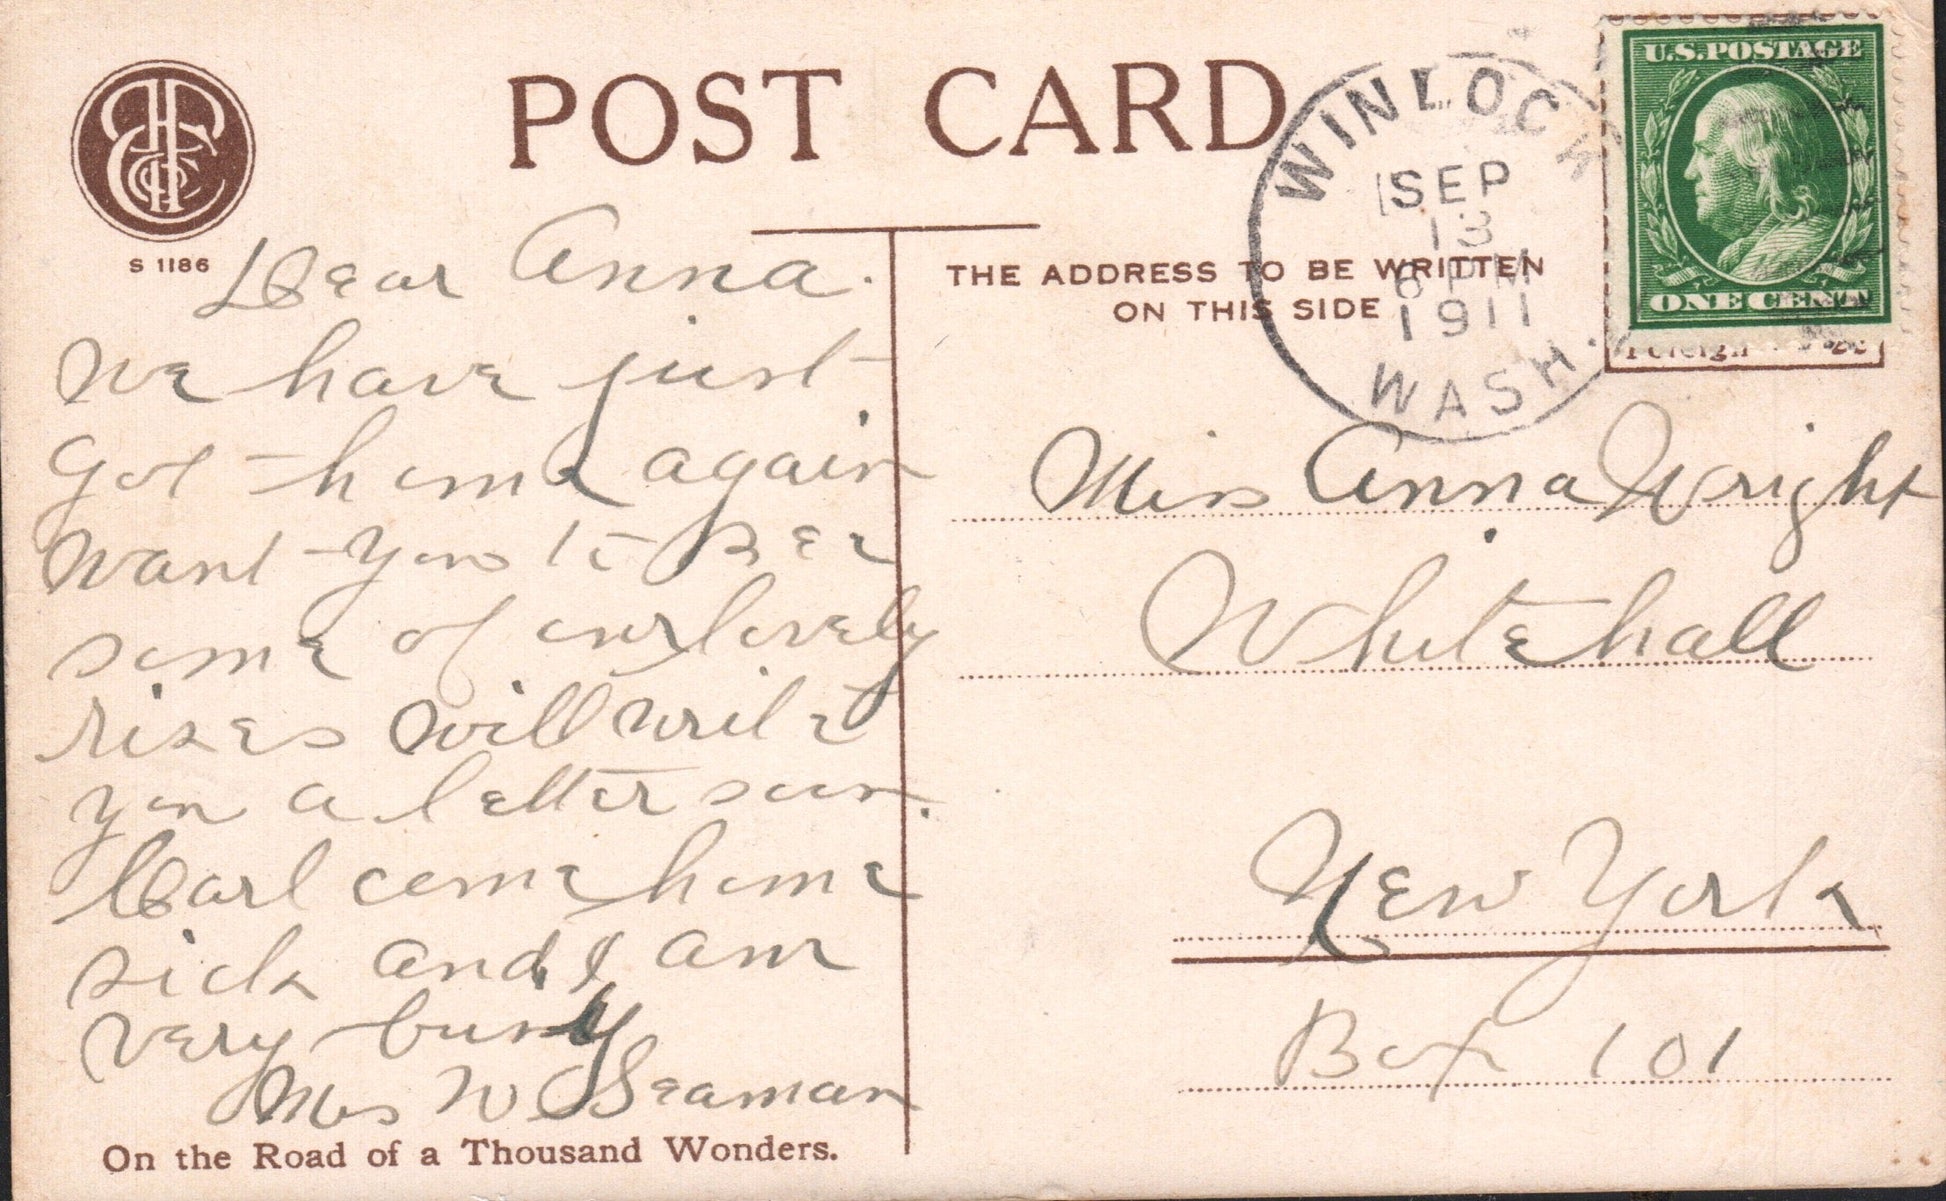 POST CARD
S 1186
THE ADDRESS TO BE WRITTEN
ON THIS SIDE
WINLOCK
SEP
13
6 PM
1911
WASH.
U.S. POSTAGE
ONE CENT
Foreign 2c
Dear Anna.
We have just
got home again
want you to see
some of our lovely
rises will write
you a letter soon.
Carl come home
sick and I am
very busy
Mrs W Seaman
On the Road of a Thousand Wonders.
Miss Anna Wright
Whitehall
New York
Box 101